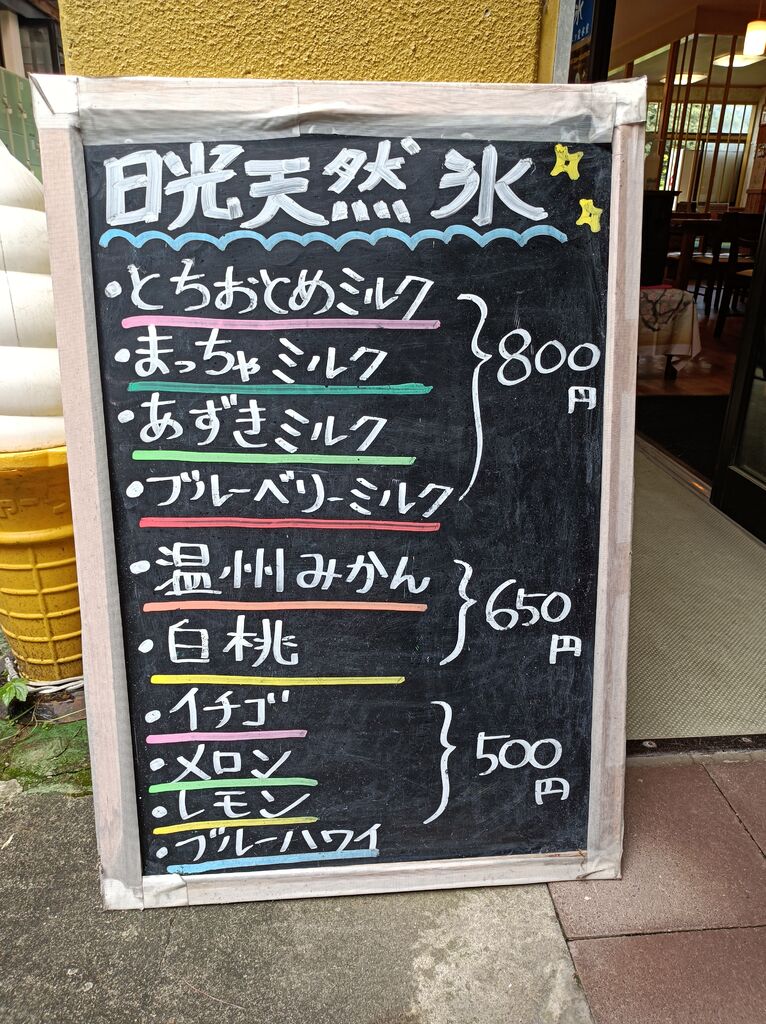 日光天然氷
・とちおとめミルク
・まっちゃミルク
・あずきミルク
・ブルーベリーミルク
800
円
・温州みかん
・白桃
650
円
・イチゴ
・メロン
・レモン
・ブルーハワイ
500
円
氷